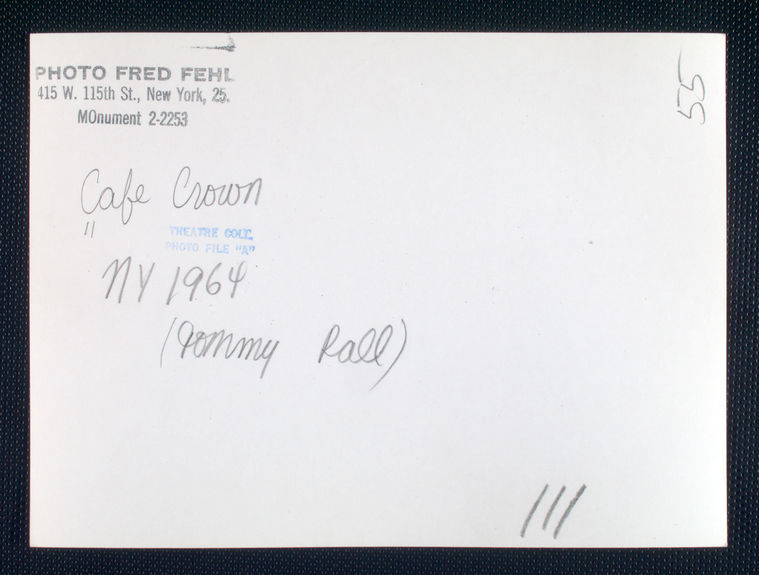 PHOTO FRED FEHL
415 W. 115th St., New York, 25.
MOnument 2-2253
55
Cafe Crown
"
THEATRE COLL.
PHOTO FILE "A"
NY 1964
(Tommy Rall)
111